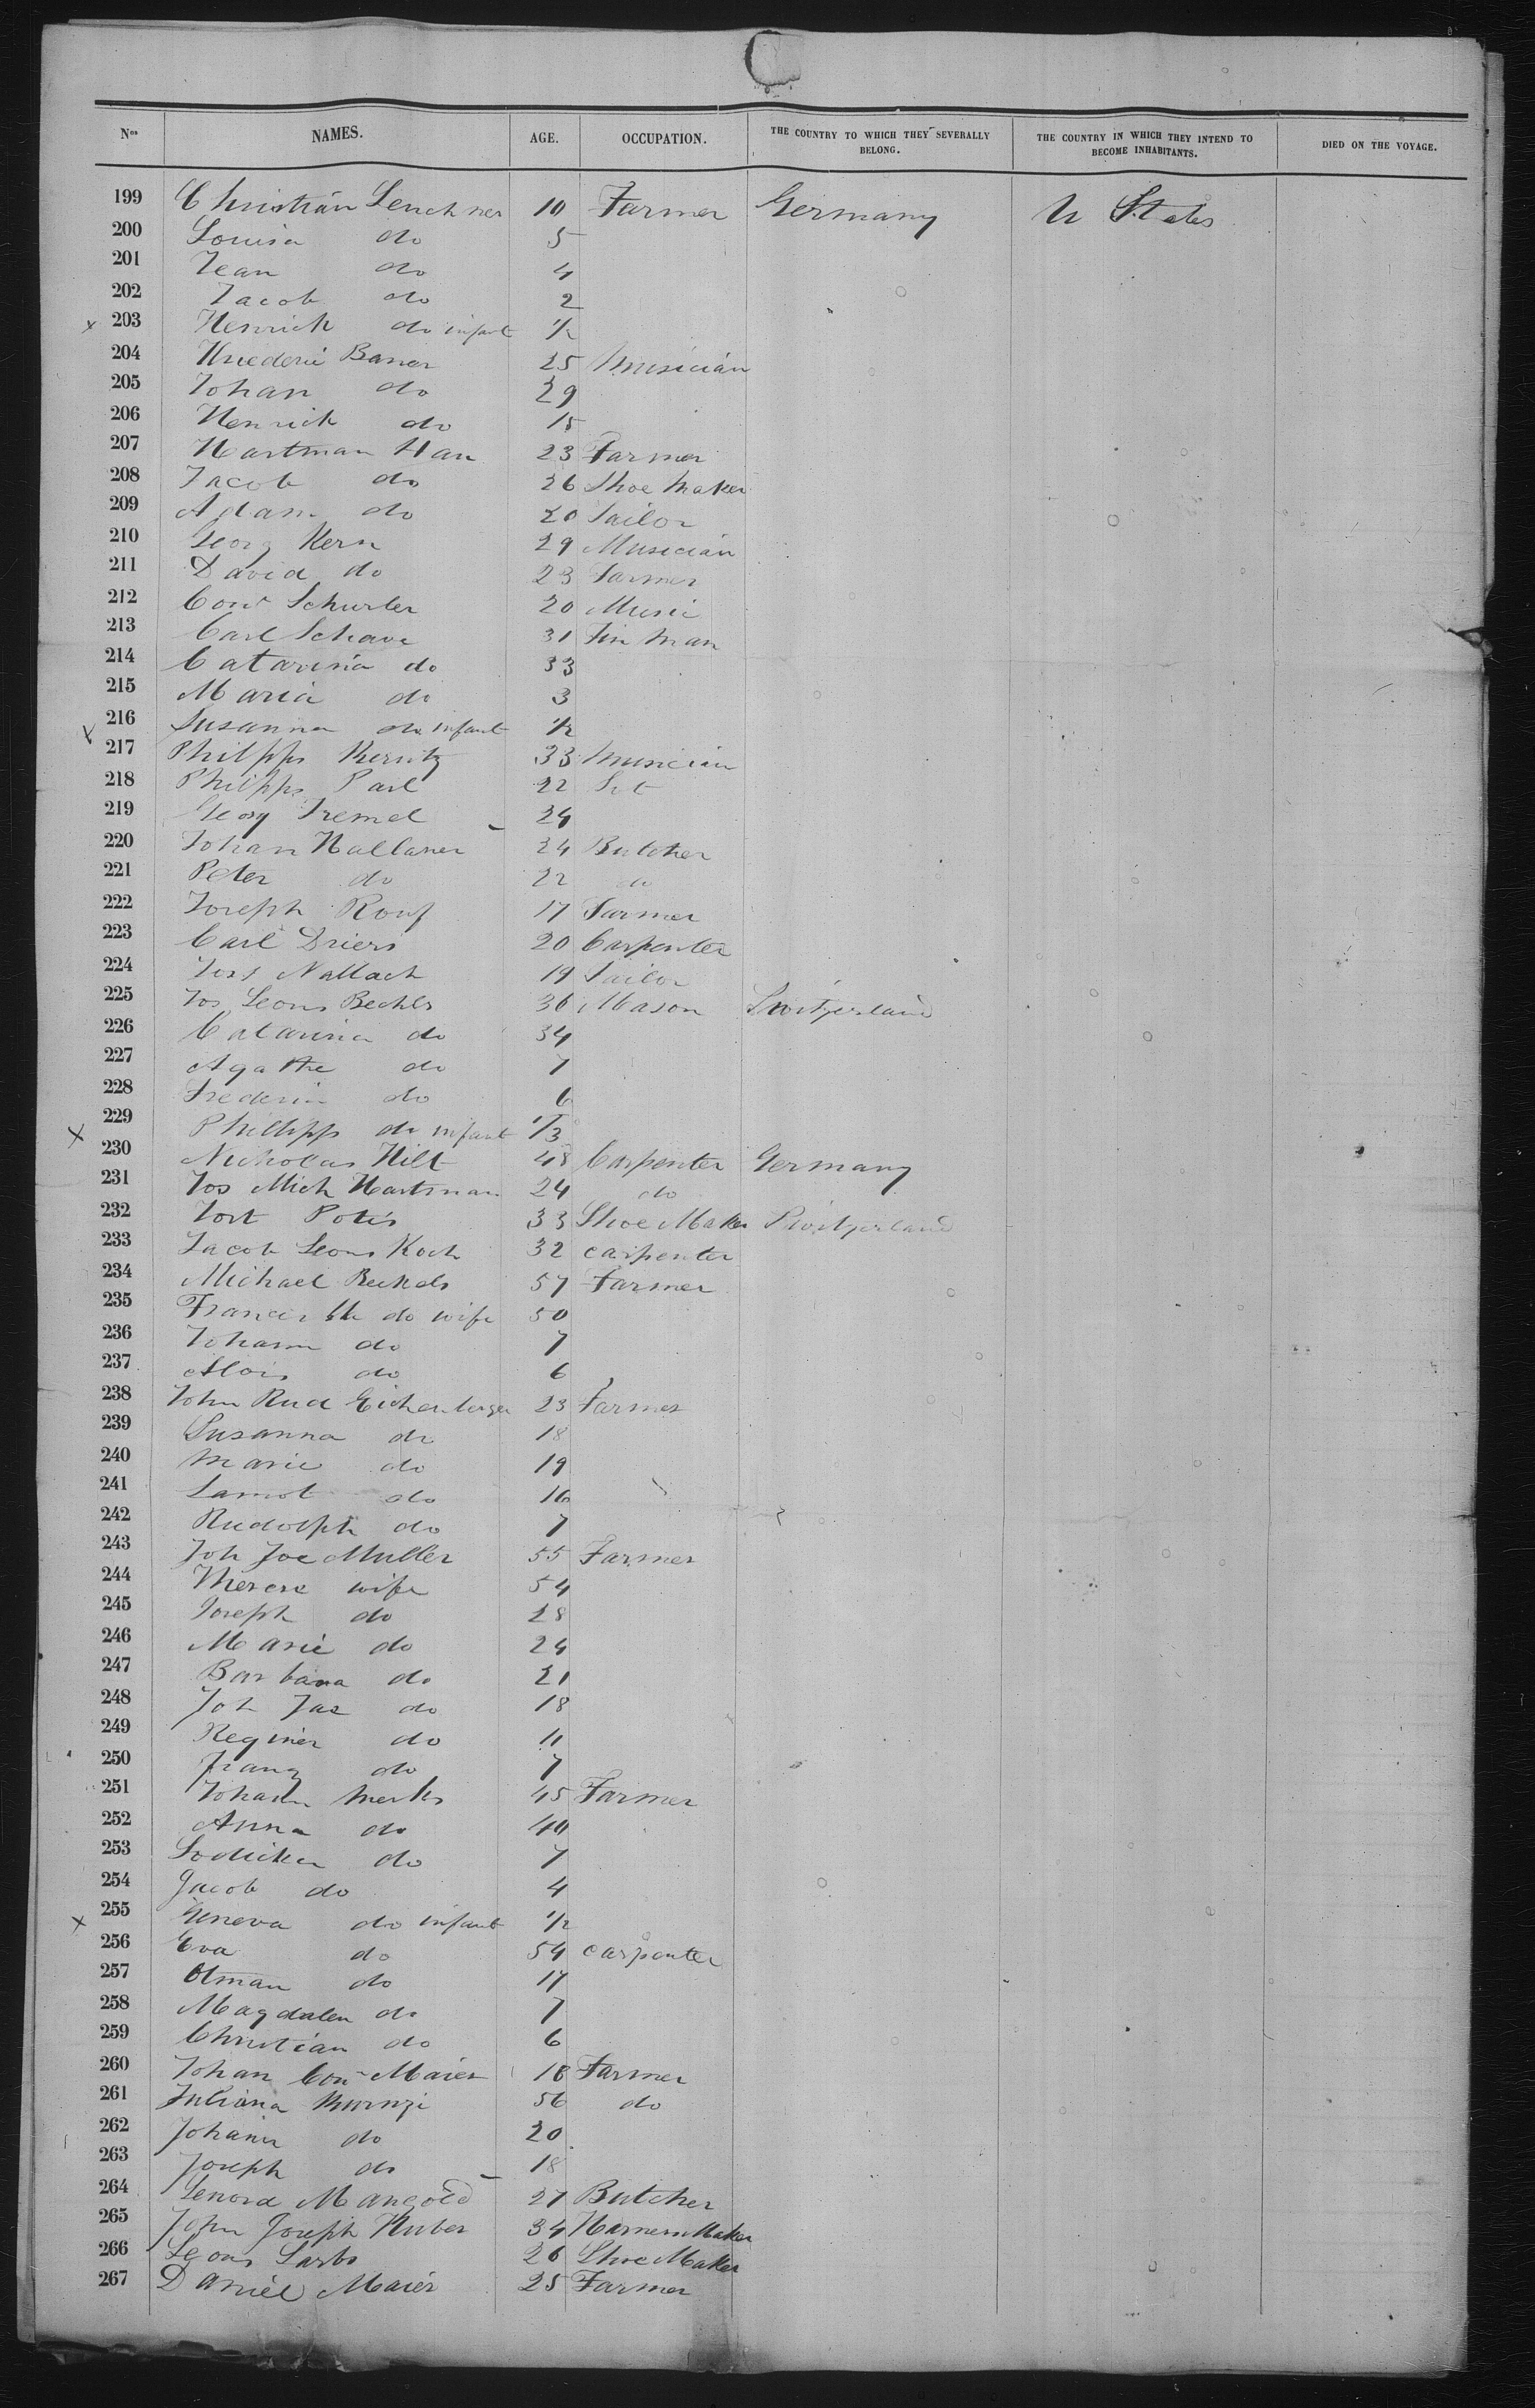 Nos NAMES. AGE. OCCUPATION. THE COUNTRY TO WHICH THEY SEVERALLY BELONG. THE COUNTRY IN WHICH THEY INTEND TO BECOME INHABITANTS. DIED ON THE VOYAGE.
199 Christian Leuchner 10 Farmer Germany U States
200 Louisa do 5
201 Jean do 4
202 Jacob do 2
x 203 Henrick do infant 1/2
204 Baner 25 Musician
205 Johan do 29
206 Henrick do 15
207 Hartman Hau 23 Farmer
208 Jacob do 26 Shoe Maker
209 Adam do 20 Tailor
210 Georg Kern 29 Musician
211 David do 23 Farmer
212 Conr Schurler 20 Music
213 Carl 31 Tin Man
214 Catarina do 33
215 Maria do 3
x 216 Susanna do infant 1/2
217 Philpps 33 Musician
218 Philpps Parl 22
219 Georg Tremel 24
220 Johan Hallaner 24 Butcher
221 Peter do 22 do
222 Joseph Rouf 17 Farmer
223 Carl Driers 20 Carpenter
224 Jos Nallach 19 Tailor
225 Jos Leons Bechler 36 Mason Switzerland
226 Catarina do 34
227 Agathe do 7
228 Frederin do 6
x 229 Phillipps do infant 1/3
230 Nicholas Hilt 48 Carpenter Germany
231 Jos Mich Hartman 24 do
232 Jost 33 Shoe Maker Switzerland
233 Jacob Leons Koch 32 carpenter
234 Michael 57 Farmer
235 do wife 50
236 Johann do 7
237 Alois do 6
238 John Rud Eichenberger 23 Farmer
239 Susanna do 18
240 Marie do 19
241 do 16
242 Rudolph do 7
243 Joh Joe Muller 55 Farmer
244 Therese wife 54
245 Joseph do 28
246 Marie do 24
247 Barbara do 21
248 Joh Jac do 18
249 Reginer do 11
250 Franz do 7
251 Johann Merks 45 Farmer
252 Anna do 40
253 do 7
254 Jacob do 4
x 255 Geneva do infant 1/2
256 Eva do 54 carpenter
257 Otman do 17
258 Magdalen do 7
259 Christian do 6
260 Johan Con Maier 18 Farmer
261 Juliana 56 do
262 Johann do 20
263 Joseph do 18
264 Lenora Mangold 27 Butcher
265 John Joseph Huber 34 Harness Maker
266 Leons Sarbs 26 Shoe Maker
267 Daniel Maier 25 Farmer